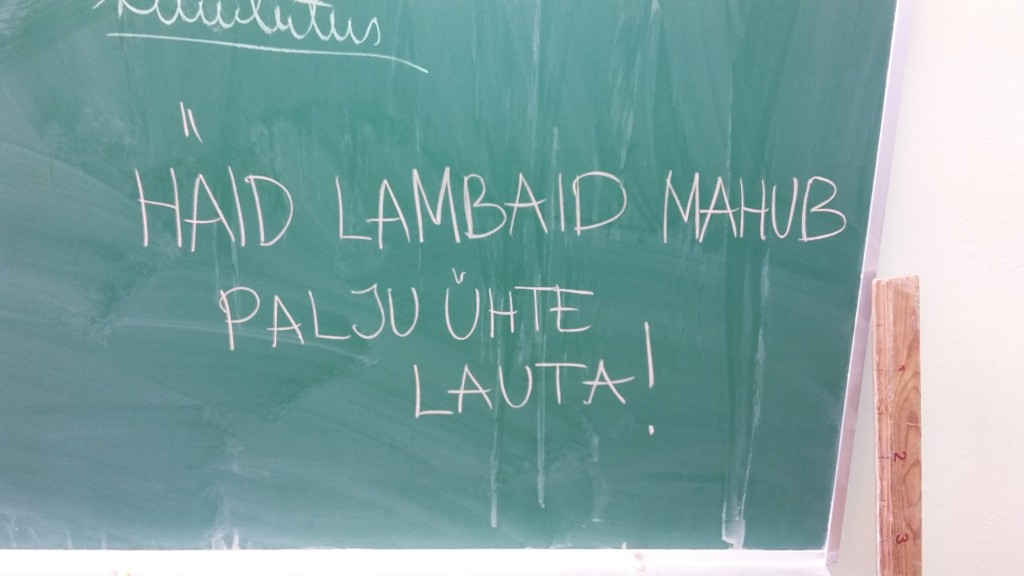 HÄID LAMBAID MAHUB
PALJU ÜHTE
LAUTA!
2
3